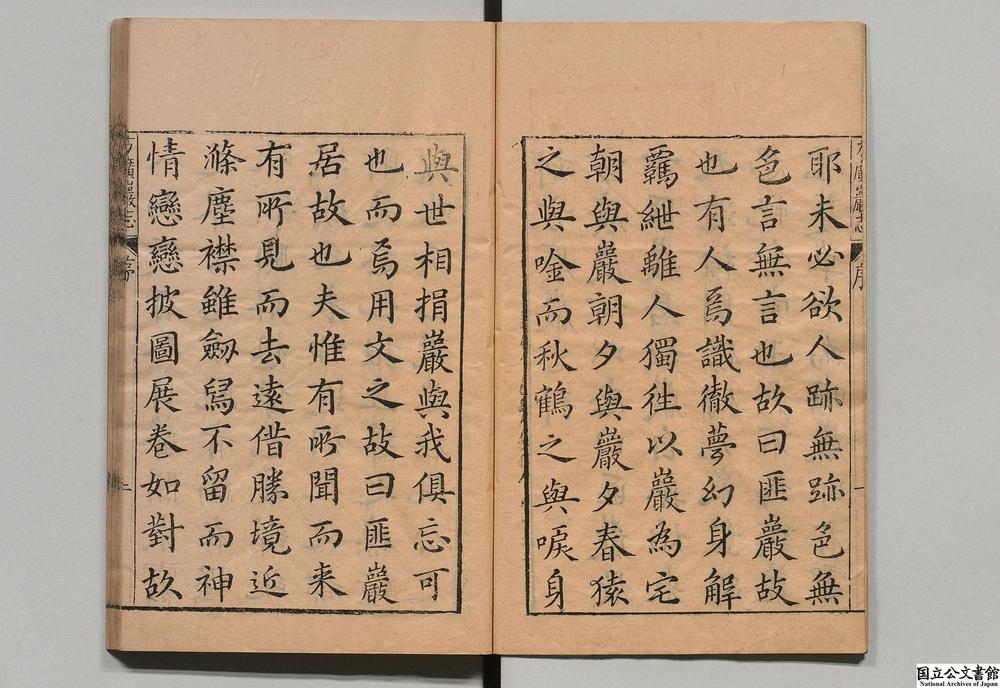 方廣巖志 序 一
耶未必欲人跡無跡色無
色言無言也故曰匪巖故
也有人焉識徹夢幻身解
羈紲離人獨徃以巖為宅
朝與巖朝夕與巖夕春猿
之與唫而秋鶴之與唳身
與世相捐巖與我俱忘可
也而焉用文之故曰匪巖
居故也夫惟有所聞而来
有所見而去遠借勝境近
滌塵襟雖劒舄不留而神
情戀戀披圖展卷如對故
方廣巖志 序 二
国立公文書館
National Archives of Japan